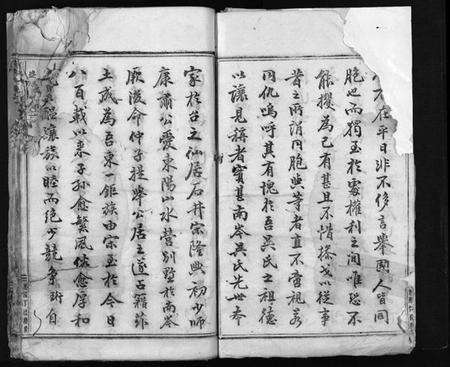 在平日非不侈言舉國人皆同
胞也而獨至於處權利之間唯恐不
能攫為己有甚且不惜操戈以從事
昔之所謂同胞與等者直不啻視若
同仇嗚呼其有愧於吾吳氏之祖德
以讓見稱者實甚南岑吳氏先世本
家於台之仙居石井宗隆興初少師
康肅公愛東陽山水營別墅於南岑
厥後命仲子提舉公居之遂占籍茲
土成為吾東一鉅族由宗至於今日
八百載以來子孫愈繁風俗愈厚和
讓族以睦而絕少競爭斫自